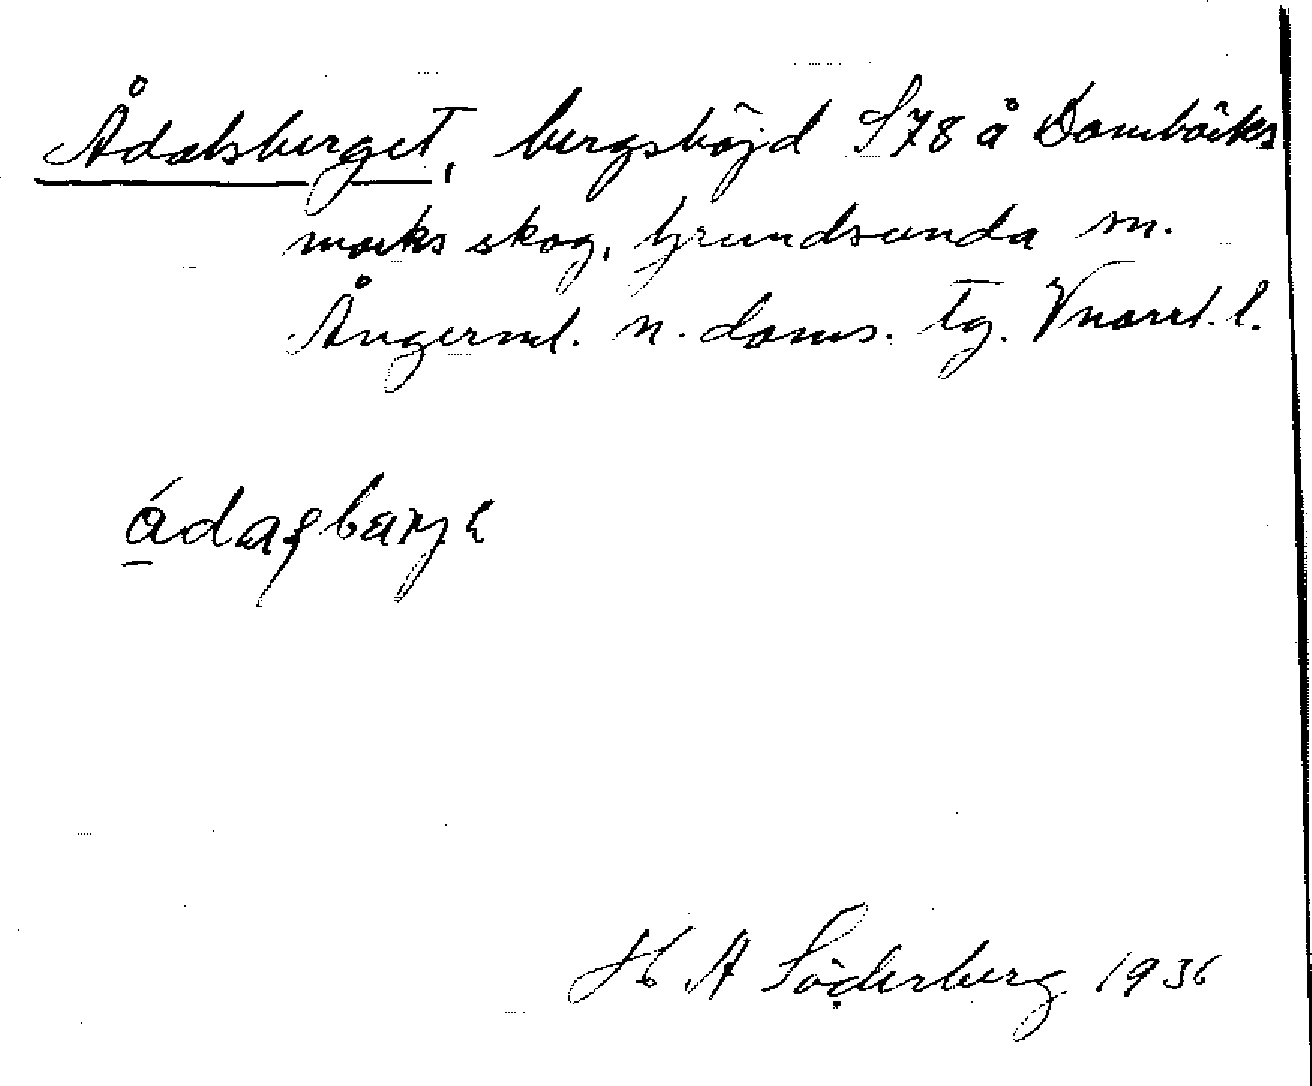 Ådalsberget, bergshöjd S78 å Dombäcks
marks skog, Grundsunda sn.
Ångerml. n. doms. tg. Vnorrl. l.
ådaʂbarjɛ
H A Söderberg 1936